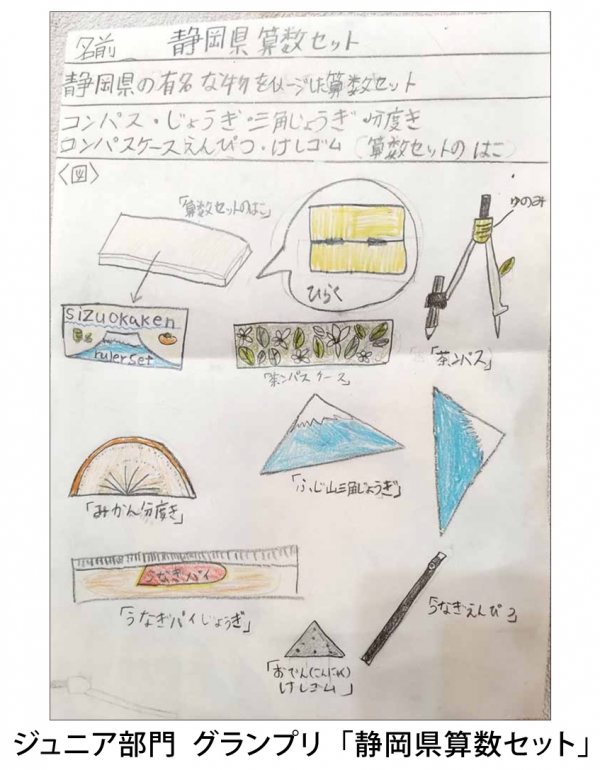 名前 静岡県算数セット
静岡県の有名な物をイメージした算数セット
コンパス・じょうぎ・三角じょうぎ・分度き
コンパスケースえんぴつ・けしゴム(算数セットのはこ)
〈図〉
「算数セットのはこ」
ひらく
ゆのみ
sizuokaken
rulerset
「茶ンパスケース」
「茶ンパス」
「みかん分度き」
「ふじ山三角じょうぎ」
うなぎパイ
「うなぎパイじょうぎ」
「うなぎえんぴつ」
「おでん(こんにゃく)
けしゴム」
ジュニア部門 グランプリ「静岡県算数セット」